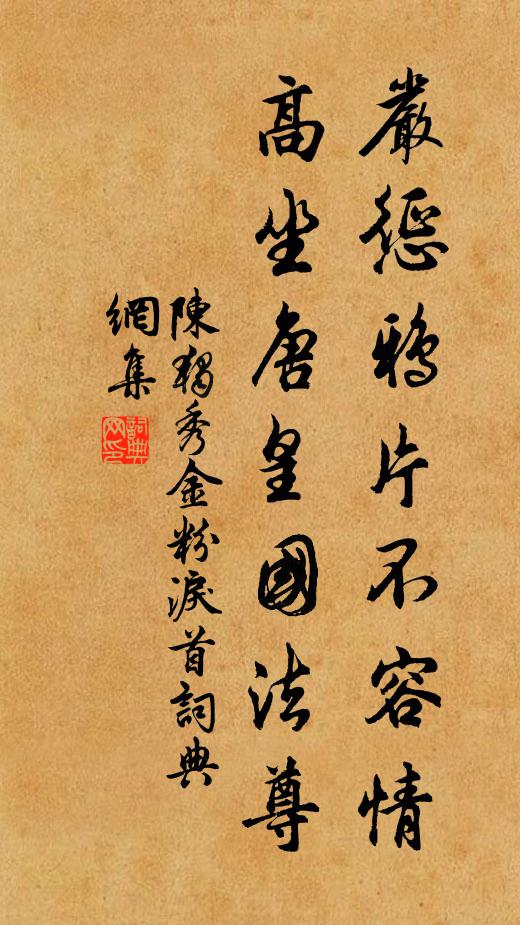 嚴懲鴉片不容情
高坐唐皇國法尊
陳獨秀金粉淚首詞典
網集
詞典
网印